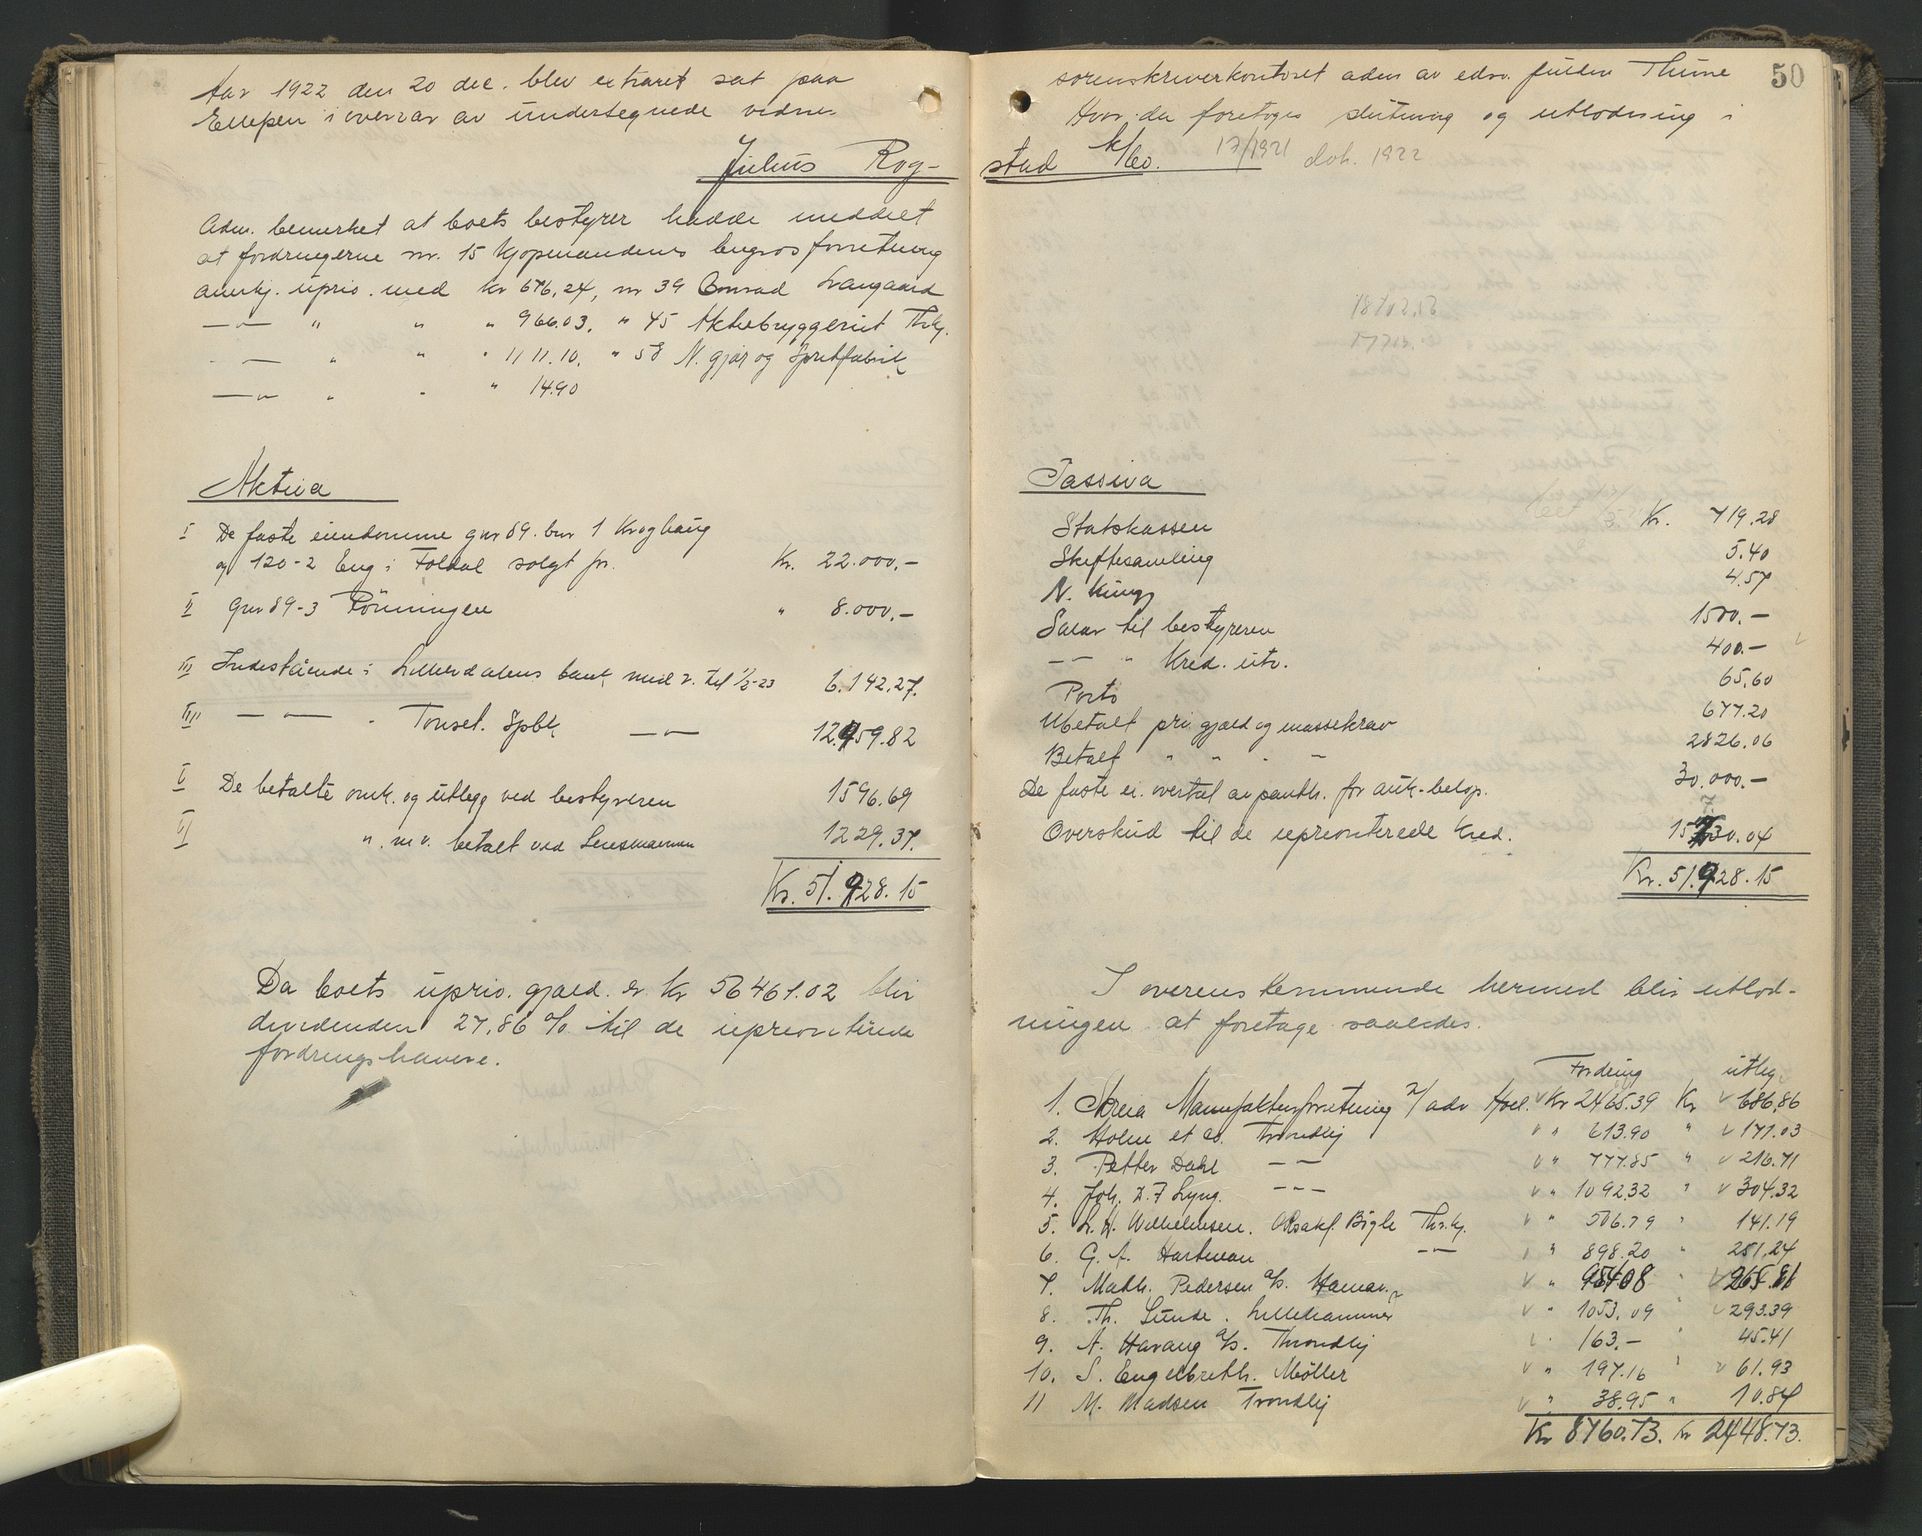 Aar 1922 den 20 dec. blev extraret sat paa
i overvær av undertegnede vidne
Julius Rog-
Adm. bemerket at boets bestyrer hadde meddelt
at fordringerne nr. 15 Kjøpmandenes Engrosforretning
anerkj. uprio. med kr 676,24, nr 39 Conrad Langaard
—"— " " " 966.03, " 45 Aktiebryggeriet Thrhj.
—"— " " " 1111.10, " 58 N. gjær og Spritfabrik
—"— " " " 14.90
Aktiva
I De faste eiendomme gnr 89. bnr 1 Kroghaug
og 120-2 Eng i Foldal solgt for Kr. 22.000,-
II Gnr 89-3 Rönningen " 8.000,-
III Indestående i Lillerdalens bank med r. til 1/2-23 6.142,27.
IIII —"— " Tonset. Spbk —"— 12.959.82
V De betalte omk. og utlegg ved bestyreren 1596.69
VI " m v. betalt ved Lensmannen 1229.37.
Kr. 51.928.15
Da boets uprio. gjæld. er kr 56461.02 blir
dividenden 27,86 % til de uprioriterede
fordringshavere.
50
sorenskriverkontoret adm av edsv. fuldm Thune
Hvor da foretoges slutning og utlodning i
stad k/bo. 17/1921 dok. 1922
18702,53
Passiva
Statskassen Kr. 719.28
Skiftesamling 5.40
N. Kung 4.57
Salar til bestyreren 1500.-
—"— " Kred. utv. 400.-
Porto 65,60
Ubetalt pri. gjæld og massekrav 677.20
Betalt " " " " 2826.06
De faste ei. overtat av panth. for auk-beløp. 30.000.-
Overskud til de uprioriterede Kred. 15730.04
Kr. 51.928.15
I overenskemmende hermed blir utlod-
ningen at foretage saaledes.
Fordring utleg
1. Skreia Manufakturforretning v/ adv Hoel. Kr 2465.39 Kr 686,86
2. Holm et co. Trondhj " 613.90 " 171.03
3. Petter Dahl —"— " 777.85 " 216.71
4. Joh. L. F Lyng. —"— " 1092.32 " 304.32
5. L. H. Wilhelmsen. O.Rsakf. Bigle Thr.hj. " 506.79 " 141.19
6. G. A. Hartman —"— " 898.20 " 251,24
7. Math. Pedersen a/s. Hamar " 954.08 " 265.81
8. Th. Lunde. Lillehammer " 1053.09 " 293.39
9. A. Havang a/s. Throndhj " 163.- " 45.41
10. S. Engelbreth. Møller " 197.16 " 61.93
11 M. Madsen Trondhj " 38.95 " 10.84
Kr 8760.73. Kr 2448.73.